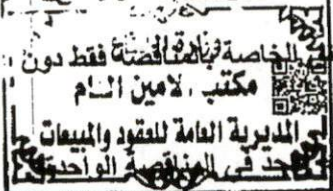 الخاصة بالمناقصة فقط دون
مكتب الامين العام
المديرية العامة للعقود والمبيعات
في المناقصة الواحدة